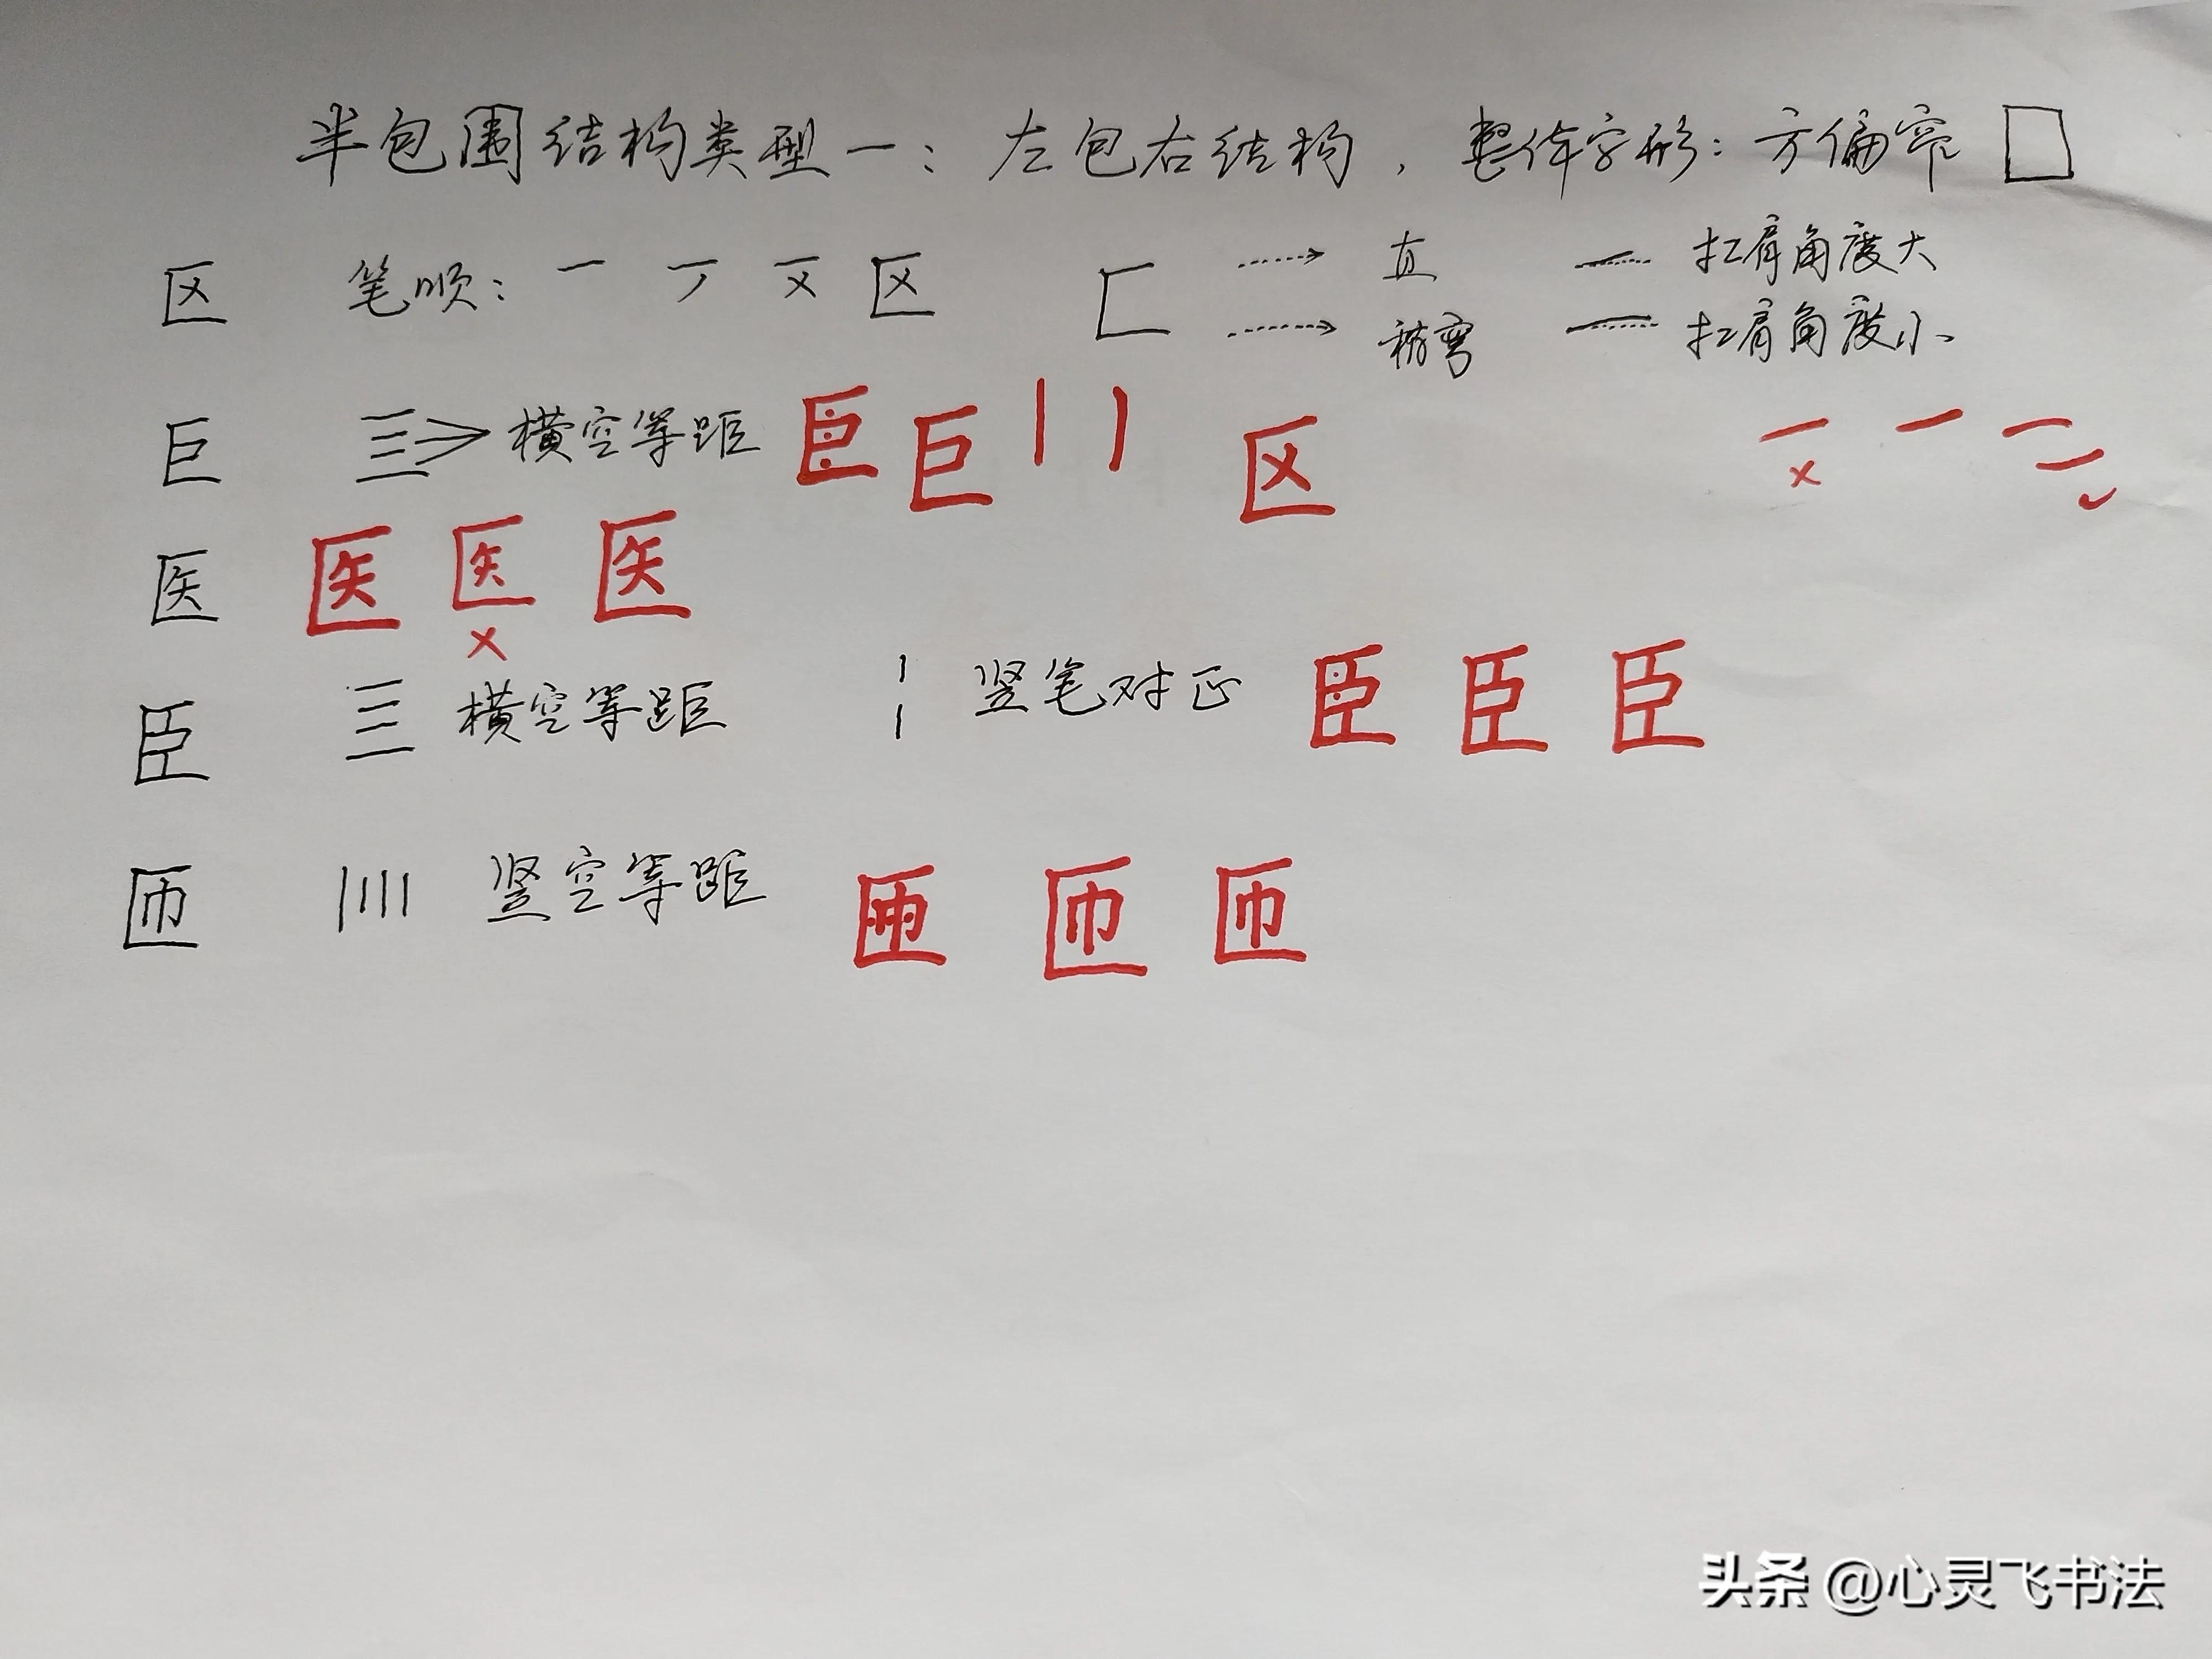 半包围结构类型一：左包右结构，整体字形：方偏窄
区 笔顺：一 区 直 扛肩角度大
稍弯 扛肩角度小
巨 横空等距 巨 巨 区
医 医 医 医
臣 横空等距 竖笔对正 臣 臣 臣
匝 竖空等距 匝 匝 匝
头条 @心灵飞书法